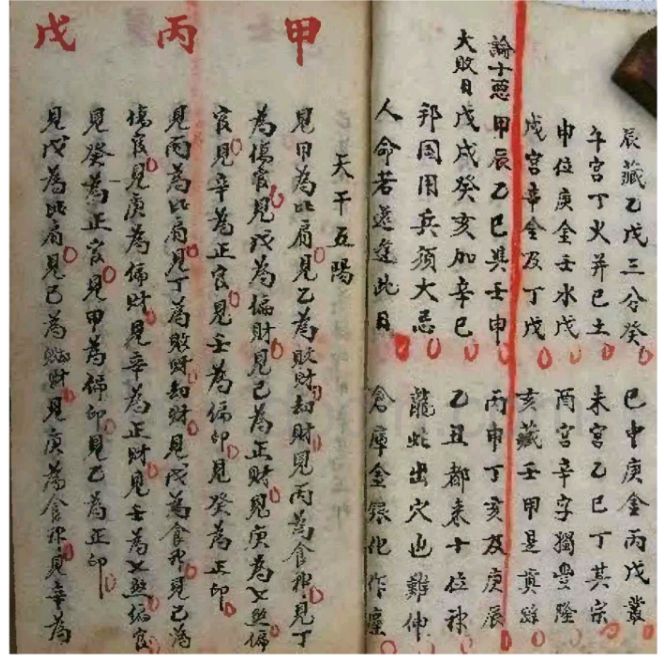 辰藏乙戊三分癸 巳中庚金丙戊叢
午宮丁火并己土 未宮乙己丁其宗
申位庚金壬水戊 酉宮辛字獨豐隆
戌宮辛金及丁戊 亥藏壬甲是真踪
論十惡 甲辰乙巳與壬申 丙申丁亥及庚辰
大敗日 戊戌癸亥加辛巳 乙丑都來十位神
邦國用兵須大忌 龍蛇出穴也難伸
人命若還逢此日 倉庫金銀化作塵
天干五陽
甲
見甲為比肩見乙為敗財劫財見丙為食神見丁
為傷官見戊為偏財見己為正財見庚為七煞偏
官見辛為正官見壬為偏印見癸為正印
丙
見丙為比肩見丁為敗財劫財見戊為食神見己為
傷官見庚為偏財見辛為正財見壬為七煞偏官
見癸為正官見甲為偏印見乙為正印
戊
見戊為比肩見己為敗財見庚為食神見辛為